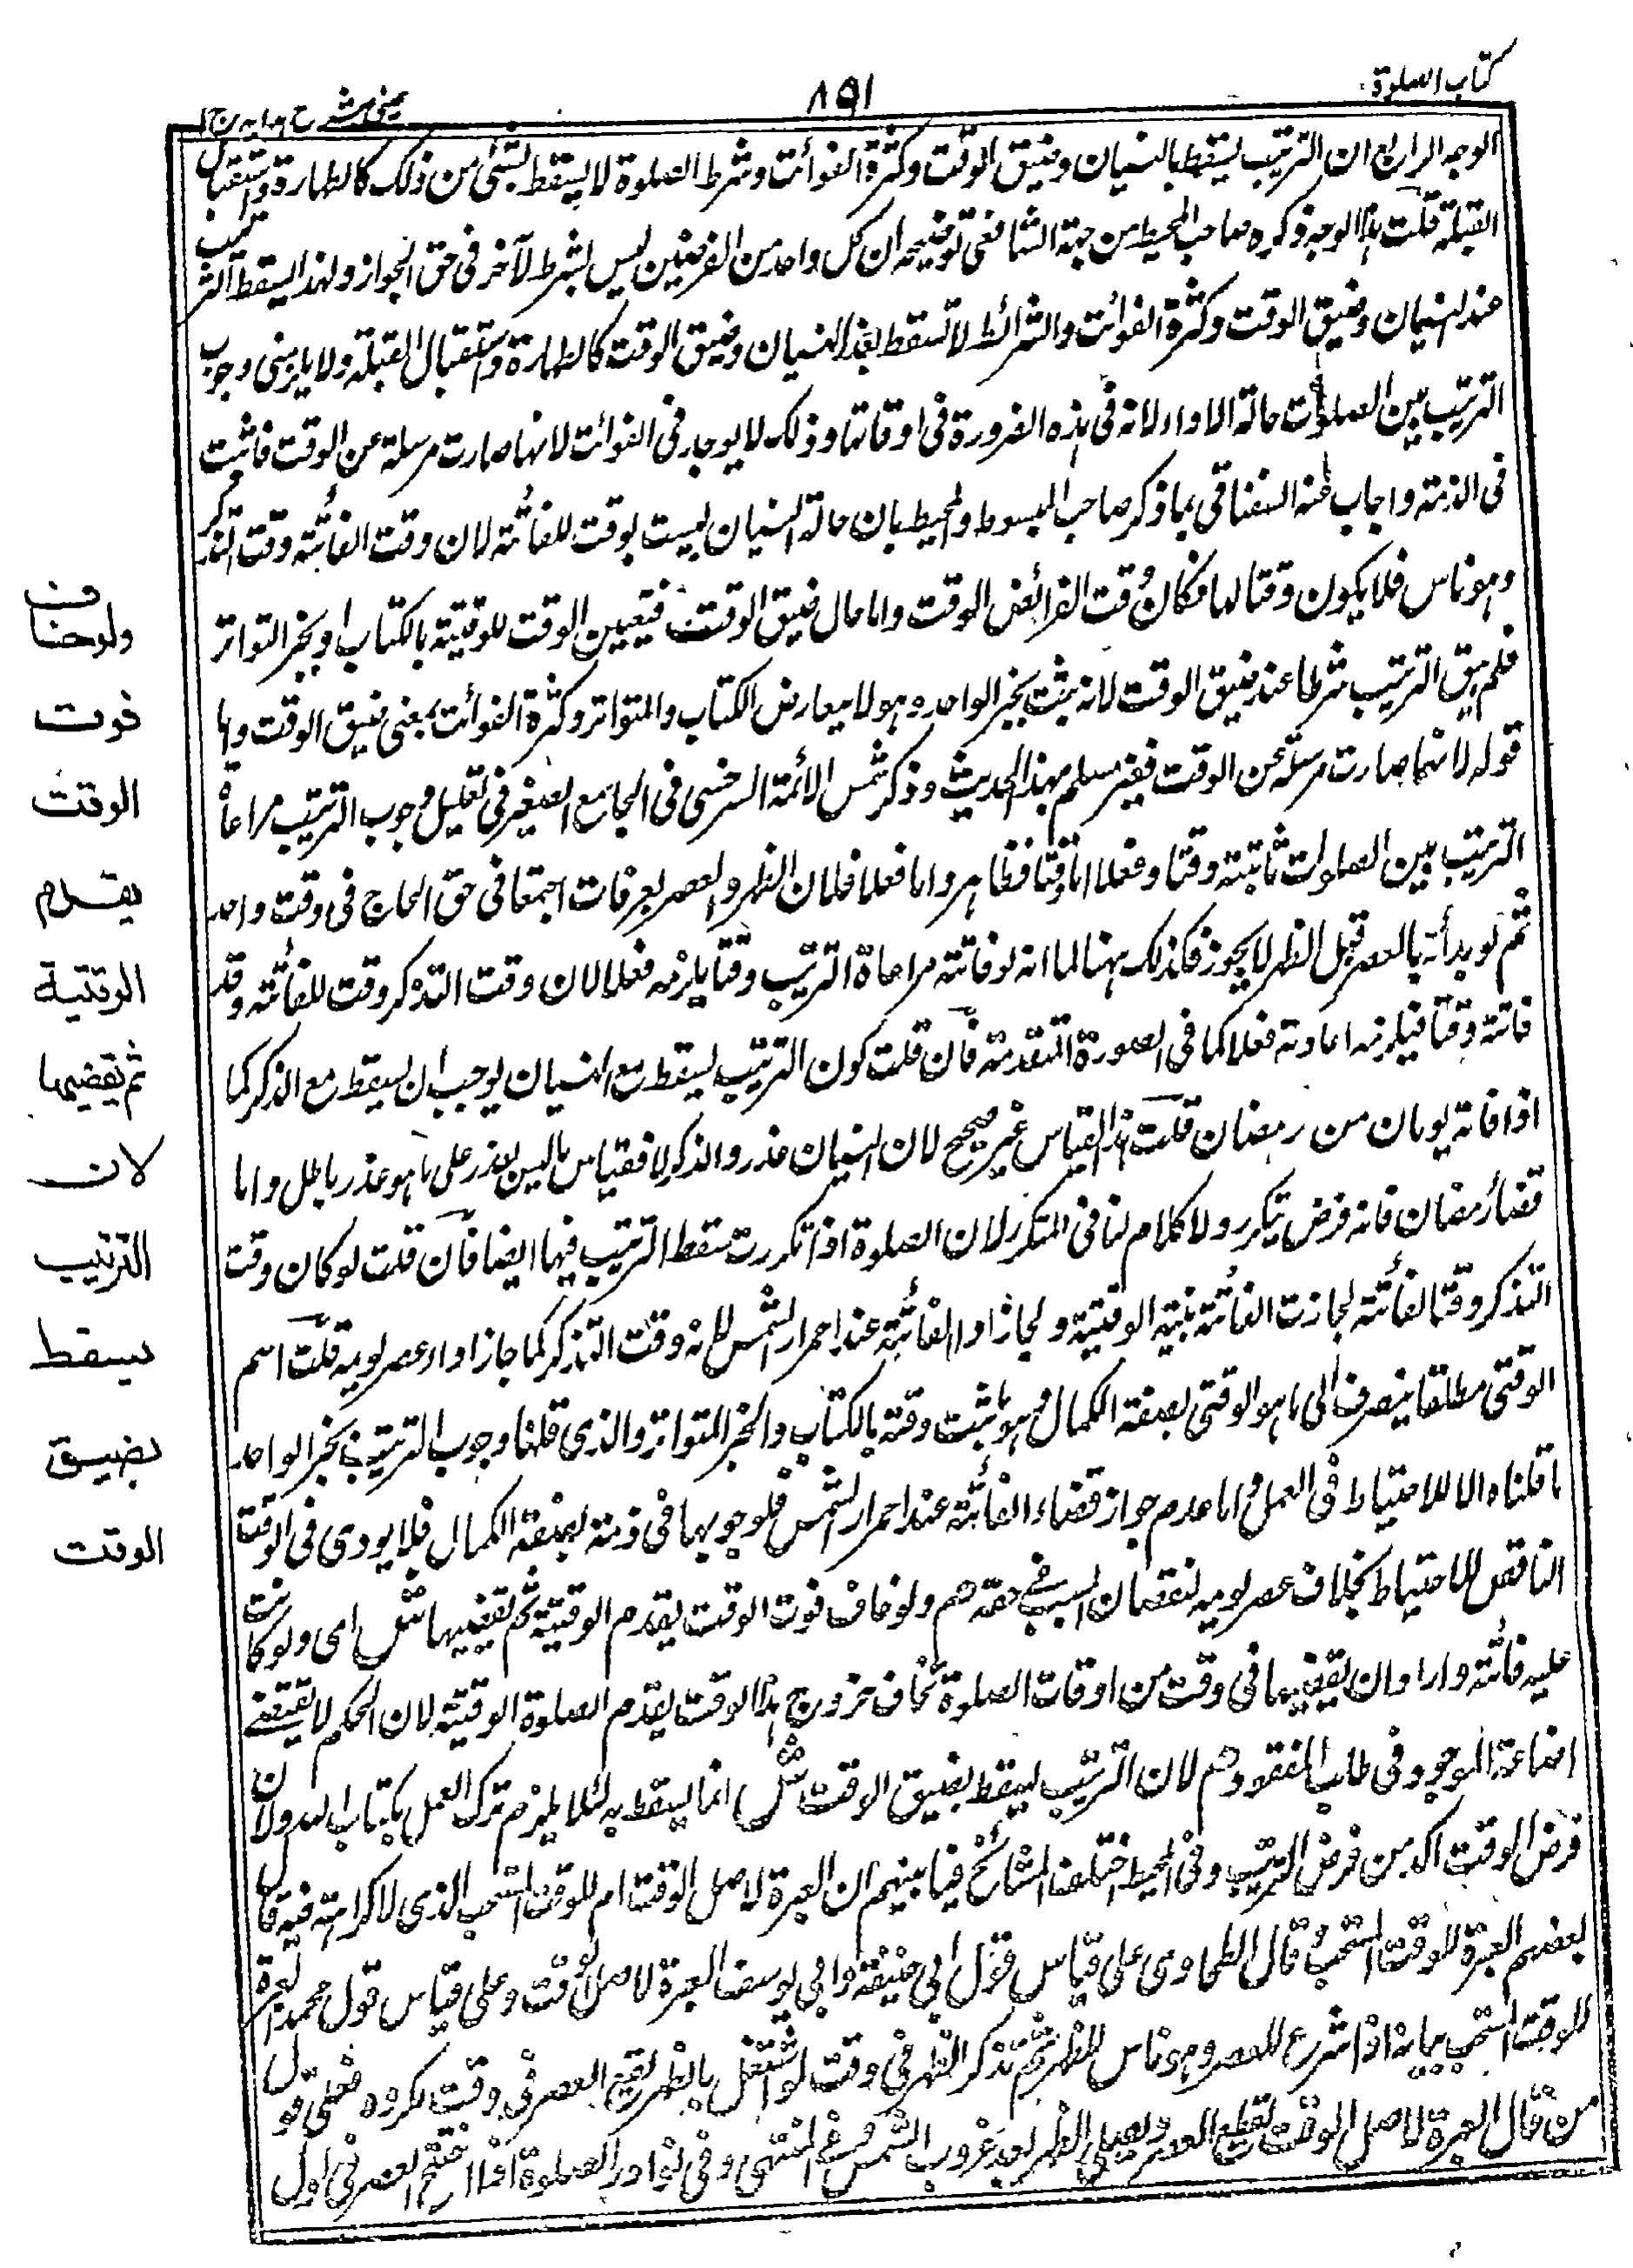 كتاب الصلوة
٨٥١
عينى شرح هدايه ج ١
الوجه الرابع ان الترتيب يسقط بالنسيان وضيق الوقت وكثرة الفوائت وشرط الصلوة لا يسقط بشئ من ذلك كالطهارة واستقبال
القبلة قلت هذا الوجه ذكره صاحب المحيط من جهة الشافعى توضيحه ان كل واحد من الفرضين ليس بشرط لآخر فى حق الجواز ولهذا يسقط الترتيب
عند النسيان وضيق الوقت وكثرة الفوائت والشرائط لا تسقط بعذر النسيان وضيق الوقت كالطهارة واستقبال القبلة ولا يلزمنى وجوب
الترتيب بين الصلوات حالة الاداء لانه فى هذه الضرورة فى اوقاتها وذلك لا يوجد فى الفوائت لانها صارت مرسلة عن الوقت ثابت
فى الذمة واجاب عنه السغناقى بما ذكر صاحب المبسوط والمحيط بان حالة النسيان ليست بوقت للفائتة لان وقت الفائتة وقت التذكر
وهو ناس فلا يكون وقتا لها فكان وقت الفرائض الوقت واما حال ضيق الوقت فتعين الوقت للوقتية بالكتاب او بخبر التواتر
فلم يبق الترتيب شرطا عند ضيق الوقت لانه يثبت بخبر الواحد وهو لا يعارض الكتاب والمتواتر وكثرة الفوائت بمعنى ضيق الوقت واما
قوله لانها صارت مرسلة عن الوقت فغير مسلم بهذا الحديث وذكر شمس الائمة السرخسى فى الجامع الصغير فى تعليل وجوب الترتيب مراعاة
الترتيب بين الصلوات ثابتة وقتا وفعلا اما وقتا فظاهر واما فعلا فلان الظهر والعصر بعرفات اجتمعا فى حق الحاج فى وقت واحد
ثم لو بدأ بالعصر قبل الظهر لا يجوز فكذلك ههنا لما انه لو فاتته مراعاة الترتيب وقتا يلزمه فعلا لان وقت التذكر وقت للفائتة وقد
فاتته وقتا فيلزمه اعادته فعلا كما فى الصورة المتقدمة فان قلت كون الترتيب يسقط مع النسيان يوجب ان يسقط مع الذكر كما
اذا فاته يومان من رمضان قلت هذا القياس غير صحيح لان النسيان عذر والذكر لا فقياس ما ليس بعذر على ما هو عذر باطل واما
قضاء رمضان فانه فرض يتكرر ولا كلام لنا فى المتكرر لان الصلوة اذا تكررت سقط الترتيب فيها ايضا فان قلت لو كان وقت
التذكر وقتا لفائتة لجازت الفائتة بنية الوقتية ولجاز اداء الفائتة عند احمرار الشمس لانه وقت التذكر كما جاز اداء عصر يومه قلت اسم
الوقتى مطلقا ينصرف الى ما هو الوقتى بصفة الكمال وهو ما ثبت وقته بالكتاب والخبر المتواتر والذى قلنا وجوب الترتيب بخبر الواحد
ما قلناه الا للاحتياط فى العمل واما عدم جواز قضاء الفائتة عند احمرار الشمس فلوجوبها فى ذمته بصفة الكمال فلا يودى فى الوقت
الناقص للاحتياط بخلاف عصر يومه لنقصان السبب فى حقه هم ولو خاف فوت الوقت يقدم الوقتية ثم يقضيها ش اى ولو كانت
عليه فائتة واراد ان يقضيها فى وقت من اوقات الصلوة فخاف خروج هذا الوقت يقدم الصلوة الوقتية لان الحكم لا يقتضى
اضاعة الموجود فى طلب المفقود هم لان الترتيب يسقط بضيق الوقت ش انما يسقط به لئلا يلزم ترك العمل بكتاب الله ولان
فرض الوقت اكد من فرض الترتيب وفى المحيط اختلف المشائخ فيما بينهم ان العبرة لاصل الوقت ام للوقت المستحب الذى لا كراهة فيه قال
بعضهم العبرة للوقت المستحب قال الطحاوى على قياس قول ابى حنيفة وابى يوسف العبرة لاصل الوقت وعلى قياس قول محمد العبرة
للوقت المستحب بيانه اذا شرع للعصر وهو ناس للظهر ثم تذكر الظهر فى وقت لو اشتغل بالظهر يقع العصر فى وقت مكروه فعلى قول
من قال العبرة لاصل الوقت يقطع العصر ويصلى الظهر بعد غروب الشمس وفى المنتقى وفى نوادر الصلوة اذا افتتح العصر فى اول
ولو خاف
فوت
الوقت
يقدم
الوقتية
ثم يقضيها
لان
الترتيب
يسقط
بضيق
الوقت